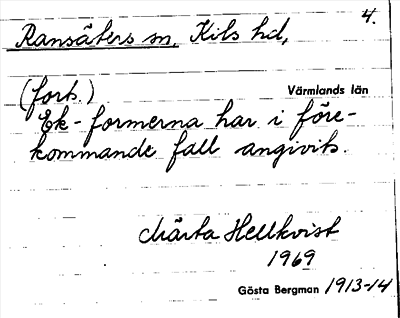 4.
Ransäters sn, Kils hd,
(forts.) Värmlands län
Ek-formerna har i före-
kommande fall angivits.
Märta Hellkvist
1969
Gösta Bergman 1913-14